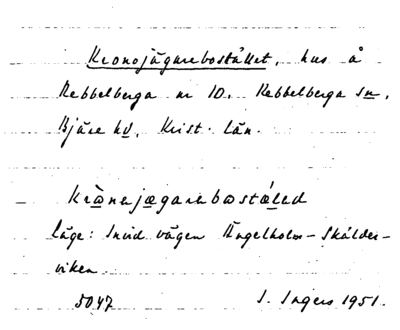 Kronojägarebostället, hus å
Rebbelberga nr 10. Rebbelberga sn,
Bjäre hd, Krist. län.
Krònejægarebostǻled
Läge: Invid vägen Ängelholm–Skälder-
viken.
5047 I. Ingers 1951.